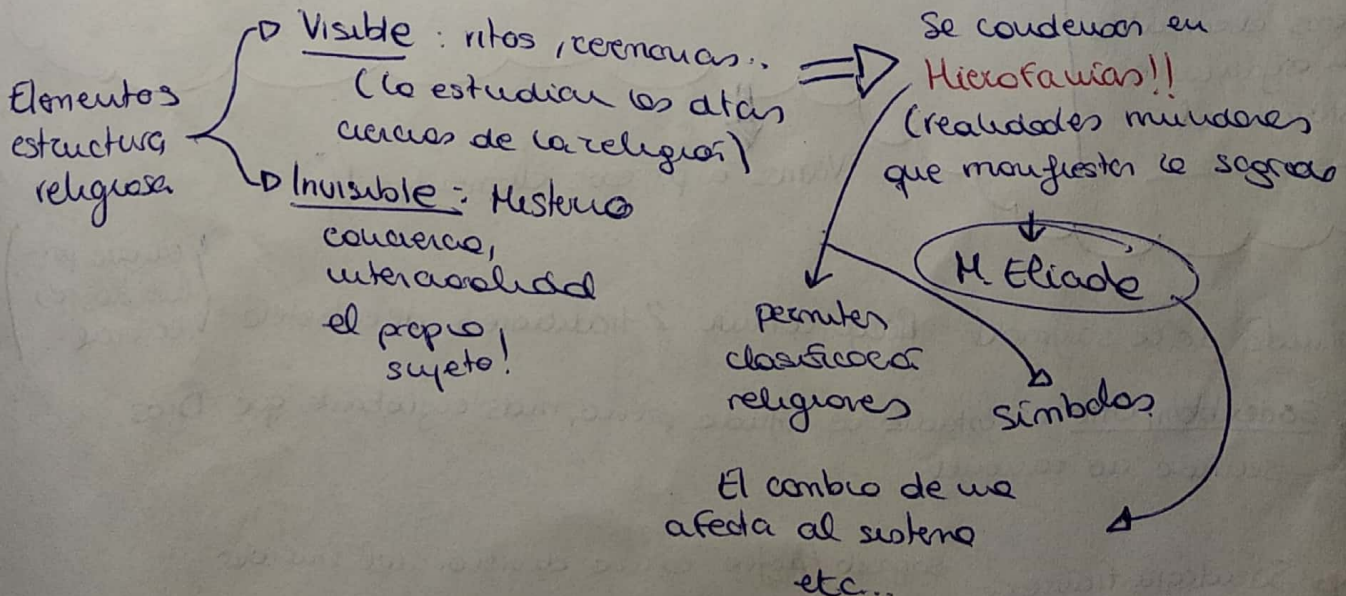 Elementos
estructura
religiosa
Visible: ritos, ceremonias..
(lo estudian las otras
ciencias de la religión)
Invisible: Misterio
conciencia,
intencionalidad
el propio
sujeto!
Se condensan en
Hierofanías!!
(realidades mundanas
que manifiestan lo sagrado
M. Eliade
permiten
clasificación
religiones
símbolos
El cambio de una
afecta al sistema
etc...